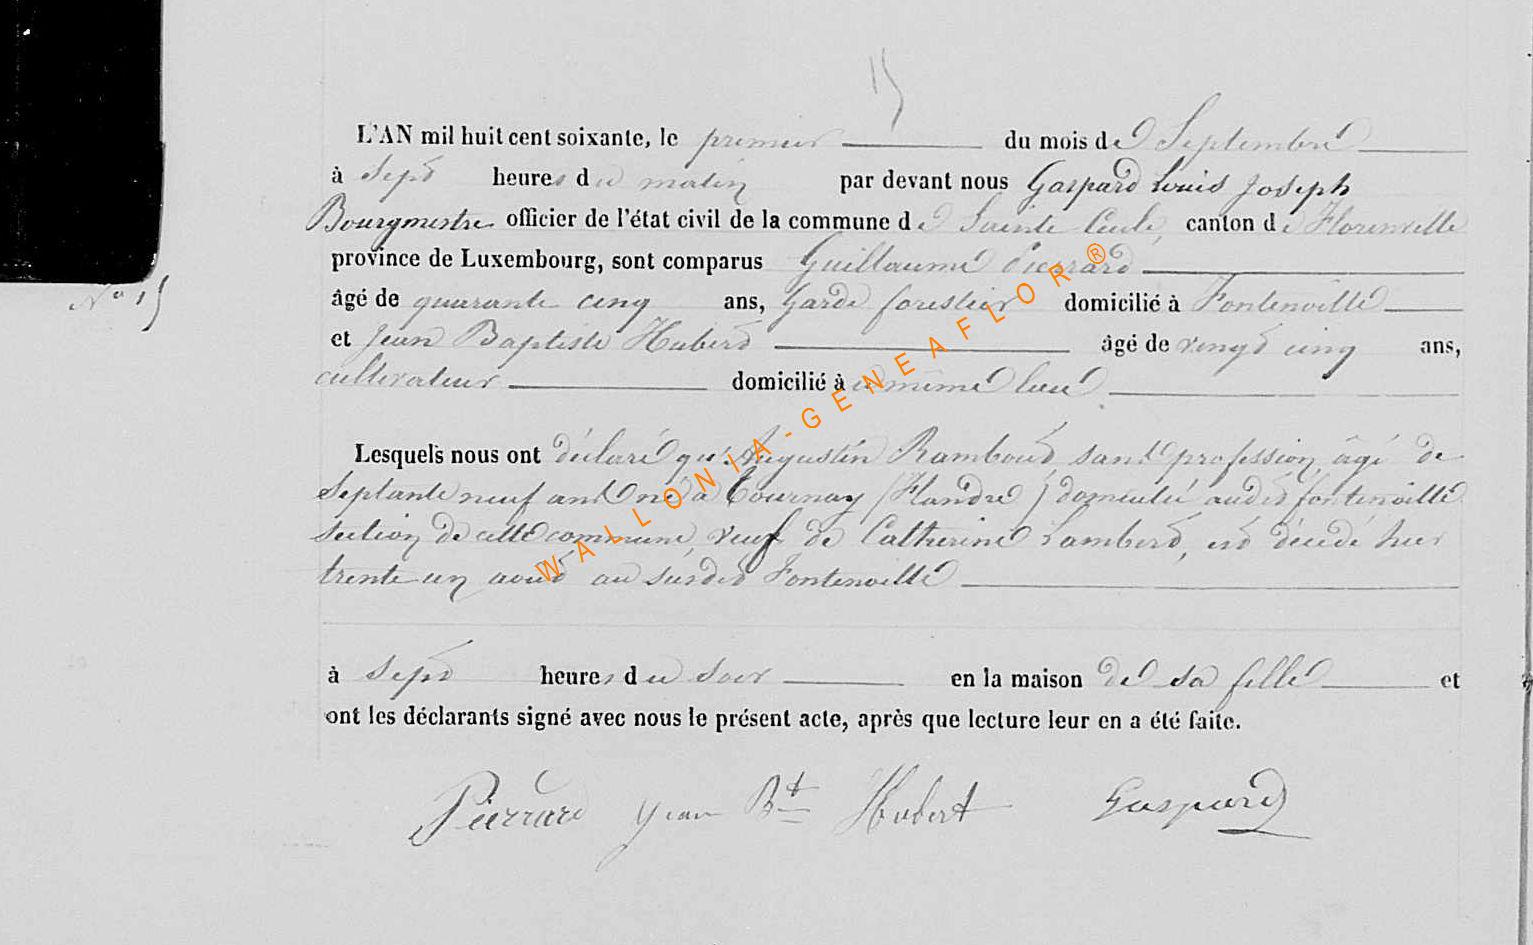 15
L'AN mil huit cent soixante, le premier du mois de Septembre
à Sept heures du matin par devant nous Gaspard Louis Joseph
Bourgmestre officier de l'état civil de la commune de Sainte Cécile, canton de Florenville
province de Luxembourg, sont comparus Guillaume Pierrard
N° 15
âgé de quarante cinq ans, Garde forestier domicilié à Fontenoille
et Jean Baptiste Hubert âgé de vingt cinq ans,
cultivateur domicilié à u même lieu
Lesquels nous ont déclaré qu'Augustin Rambout, sans profession, âgé de
Septante neuf ans né à Tournay (Flandre) domicilié audit fontenoille
section de cette commune, veuf de Catherine Lambert, est décédé hier
trente un aout au susdit Fontenoille
à sept heures du soir en la maison de sa fille et
ont les déclarants signé avec nous le présent acte, après que lecture leur en a été faite.
Pierrard Jean Bte Hubert Gaspard
WALLONIA-GENEAFLOR®